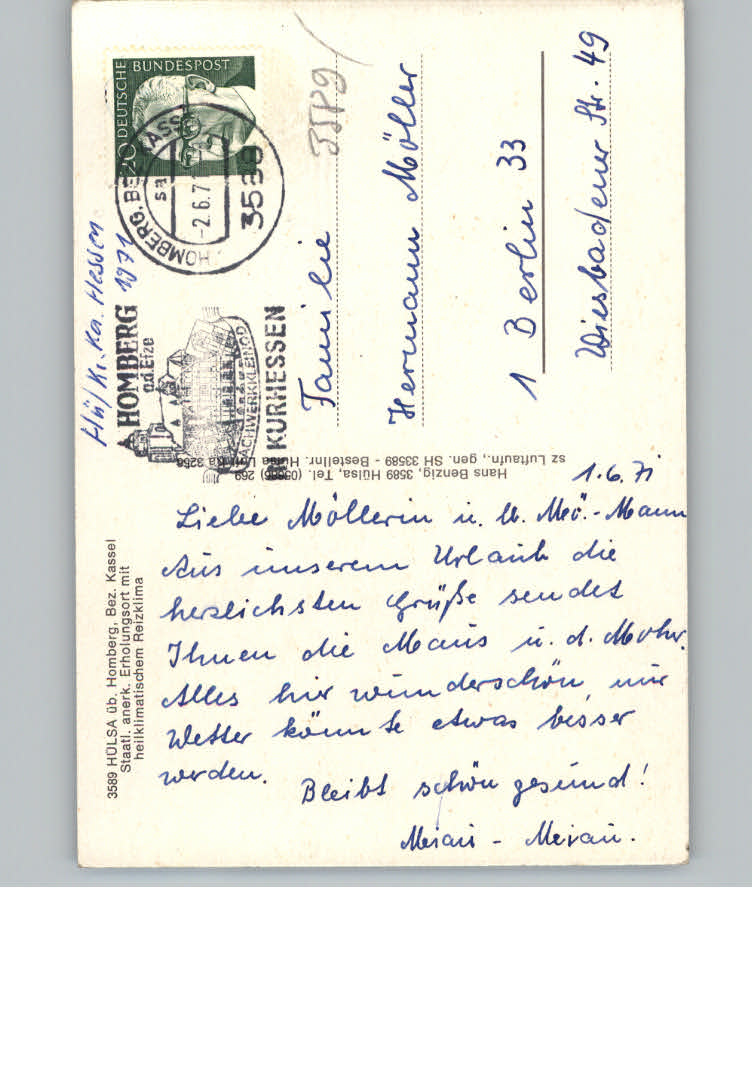 3589 HÜLSA üb. Homberg, Bez. Kassel
Staatl. anerk. Erholungsort mit
heilklimatischem Reizklima
1.6.71
Liebe Möllerin u. lb. Mö.-Mann
Aus unserem Urlaub die
herzlichsten Grüße sendet
Ihnen die Maus u. d. Mohr.
Alles hier wunderschön, nur
Wetter könnte etwas besser
werden.
Bleibt schön gesund!
Hans Benzig, 3589 Hülsa, Tel. (05686) 269
sz Luftaufn., gen. SH 33589 - Bestellnr. Hülsa Ka 3256
Hül/Kr. Ka. Hessen
1971
HOMBERG
a.d. Efze
FACHWERKKLEINOD
IN KURHESSEN
DEUTSCHE BUNDESPOST
20
HOMBERG, BEZ KASSEL
sa
-2.6.71
3588
3589
Familie
Hermann Möller
1 Berlin 33
Wiesbadener Str. 49